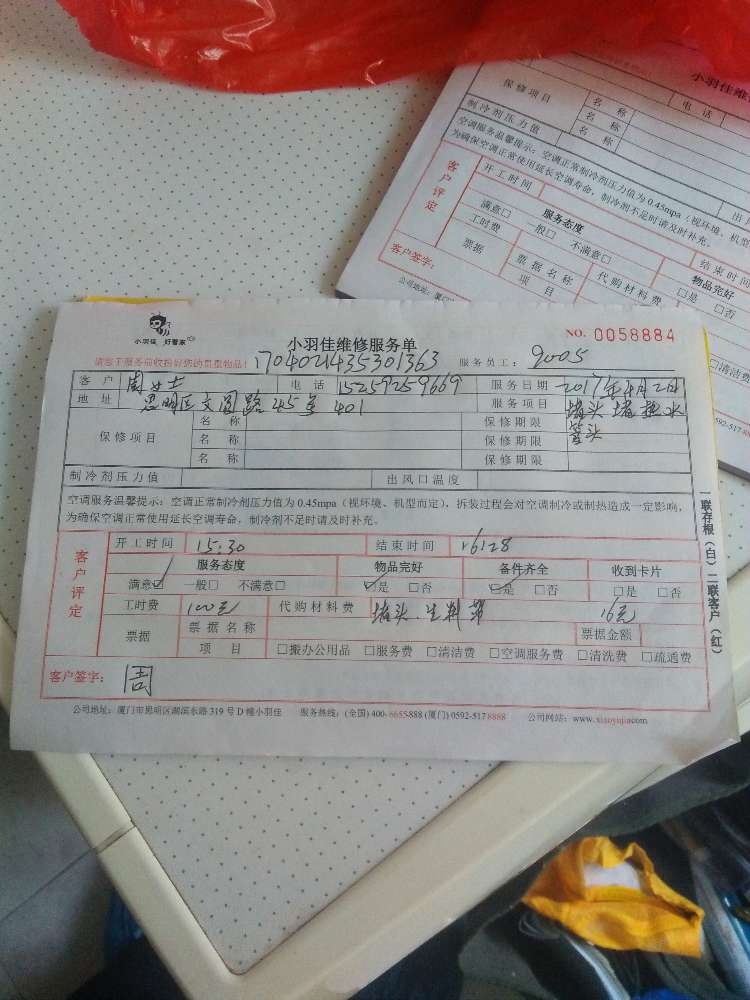 小羽佳维
保修项目 名 称 电 话
名 称
制冷剂压力值 名 称
空调服务温馨提示：空调正常制冷剂压力值为0.45mpa（视环境、机型
为确保空调正常使用延长空调寿命，制冷剂不足时请及时补充。
客户评定 开工时间 结束时间
服务态度 物品完好
满意□ 一般□ 不满意□ □是 □否
工时费 代购材料费 □清洁费
票据 票据名称
项 目
客户签字：
小羽佳 好管家
小羽佳维修服务单 NO. 0058884
请您于服务前收拾好您的贵重物品！ 1704021435301363 服务员工： 9005
客 户 周女士 电 话 15259259669 服务日期 2017年4月2日
地 址 思明区文园路45号401 服务项目 堵头堵热水
管头
保修项目 名 称 保修期限
名 称 保修期限
名 称 保修期限
制冷剂压力值 出风口温度
空调服务温馨提示：空调正常制冷剂压力值为0.45mpa（视环境、机型而定），拆装过程会对空调制冷或制热造成一定影响，
为确保空调正常使用延长空调寿命，制冷剂不足时请及时补充。
客户评定 开工时间 15:30 结束时间 16:28
服务态度 物品完好 备件齐全 收到卡片
满意☑ 一般□ 不满意□ ☑是 □否 ☑是 □否 □是 □否
工时费 100元 代购材料费 堵头、生料带 16元
票据 票据名称 票据金额
项 目 □搬办公用品 □服务费 □清洁费 □空调服务费 □清洗费 □疏通费
客户签字： 周
公司地址：厦门市思明区湖滨东路319号D幢小羽佳 服务热线：(全国)400-6655-888 (厦门)0592-5178888 公司网站：www.xiaoyujia.com
一联存根（白）二联客户（红）